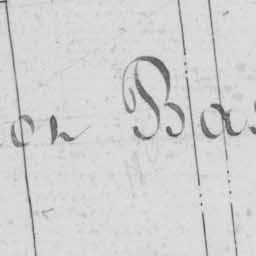 on Bas